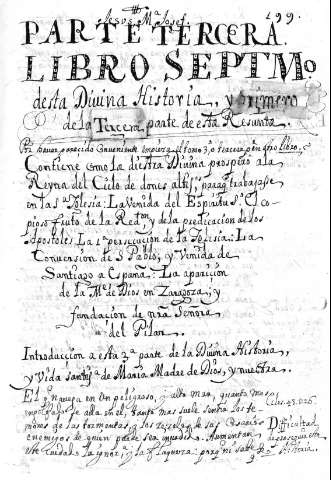 Jesus, Mª Josef. 199.
PARTE TERCERA.
LIBRO SEPTMo
desta Divina Historia, y primero
de la Tercera parte de esta
Por haver parecido conveniente empieza el tomo 3, o tercera pte en otro libro,
Contiene como la diestra Divina prospero a la
Reyna del Cielo de dones altiss. para q trabajasse
en la sta Iglesia: La Venida del Espiritu sto: El co
pioso fruto de la Redon y de la predicacion de los
Apostoles: La 1ª persecucion de la Iglesia: La
Conversion de S. Pablo; y Venida de
Santiago a España: La aparicion
de la Me de Dios en Zaragoza; y
fundacion de nra Señora
del Pilar.
Introduccion a esta 3ª parte de la Divina Historia,
y Vida santissa de Maria Madre de Dios, y nuestra.
El q navega en un peligroso, y alto mar, quanto mas
se alla en el, tanto mas suele sentir los te-
mores de las tormentas, y los rezelos de sus Cosarios
enemigos de quien puede ser Aumentan
este cuidado la ignora y la flaqueza: porq ni sabe
Dificultad
Historia.